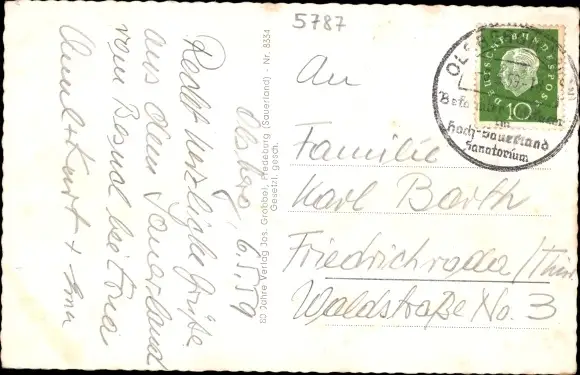 5787
Olsberg, 6.5.59
Recht herzliche Grüße
aus dem Sauerland
vom Besuch bei Erna
Kurt + Erna
60 Jahre Verlag Jos. Grobbel, Fredeburg (Sauerland) - Nr. 8334
Gesetzl. gesch.
An
Familie
Karl Barth
Friedrichroda/Thür.
Waldstraße No. 3
DEUTSCHE BUNDESPOST
10
im
Hoch-Sauerland
Sanatorium